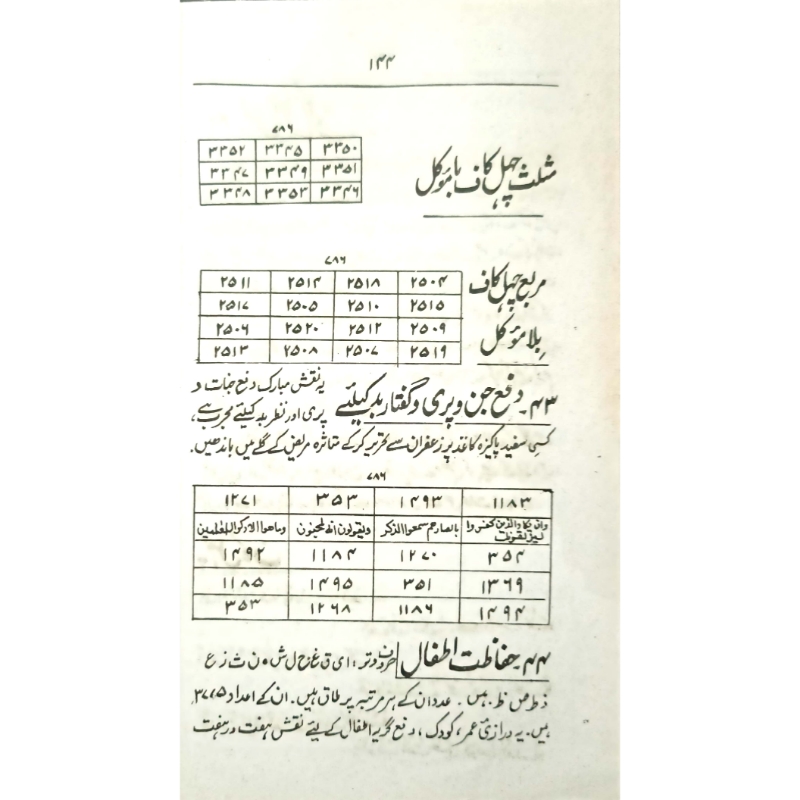 ۱۴۴
۷۸۶
مثلث چہل کاف با مؤکل
۳۳۵۰ ۳۳۴۵ ۳۳۵۲
۳۳۵۱ ۳۳۴۹ ۳۳۴۷
۳۳۴۶ ۳۳۵۳ ۳۳۴۸
۷۸۶
مربع چہل کاف
بلا مؤکل
۲۵۰۴ ۲۵۱۸ ۲۵۱۴ ۲۵۱۱
۲۵۱۵ ۲۵۱۰ ۲۵۰۵ ۲۵۱۷
۲۵۰۹ ۲۵۱۲ ۲۵۲۰ ۲۵۰۶
۲۵۱۹ ۲۵۰۷ ۲۵۰۸ ۲۵۱۳
۴۳۔ دفع جن و پری و گفتار بد کیلئے یہ نقش مبارک دفع جنات و
پری اور نظر بد کیلئے مجرب ہے،
کسی سفید پاکیزہ کاغذ پر زعفران سے تحریر کر کے متاثرہ مریض کے گلے میں باندھیں۔
۷۸۶
۱۱۸۳ ۱۴۹۳ ۳۵۳ ۱۲۷۱
وان یکاد الذین کفروا لیزلقونک بابصارھم سمعوا الذکر ویقولون انہ لمجنون وماھو الا ذکر للعلمین
۳۵۴ ۱۲۷۰ ۱۱۸۴ ۱۴۹۲
۱۳۶۹ ۳۵۱ ۱۴۹۵ ۱۱۸۵
۱۴۹۴ ۱۱۸۶ ۱۲۶۸ ۳۵۳
۴۴۔ حفاظت اطفال حروف وتر: ا ی ق غ ج ل ش ہ ن ث ز ع
ذ ط ص ظ ہیں۔ عدد ان کے ہر مرتبہ پر طاق ہیں۔ ان کے اعداد ۳۷۷۵
ہیں۔ یہ درازئ عمر، کودک، دفع گریہ اطفال کے لیئے نقش ہفت در ہفت